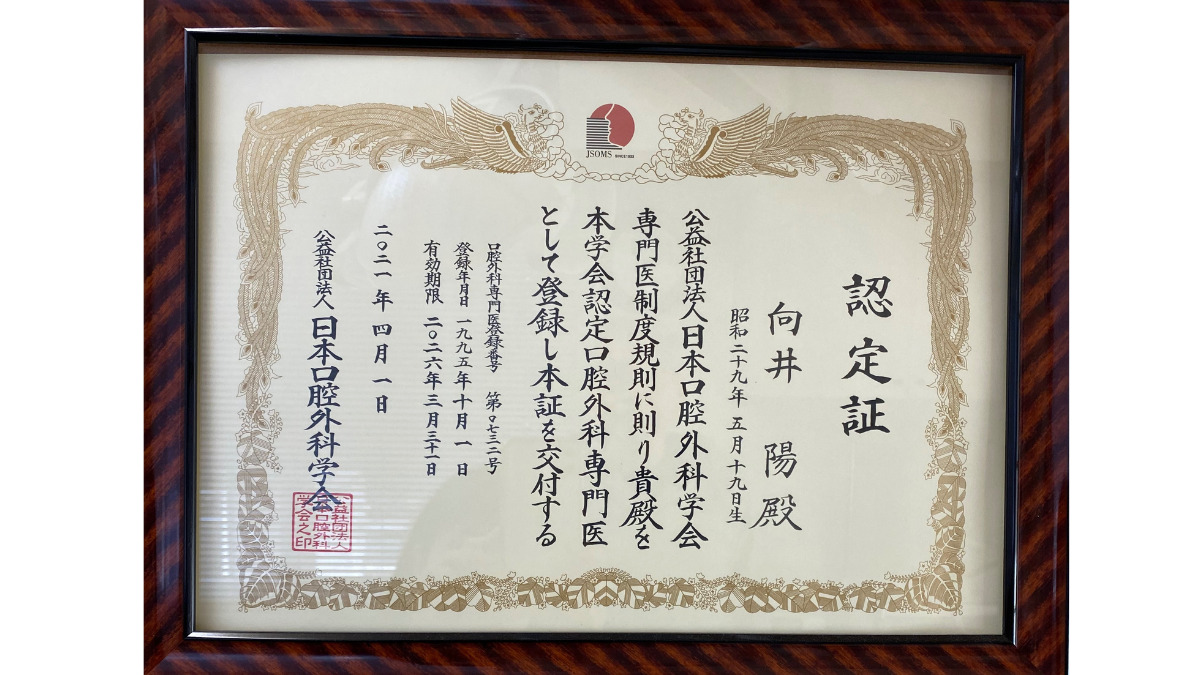 JSOMS SINCE1933
認定証
向井 陽 殿
昭和二十九年五月十九日生
公益社団法人日本口腔外科学会
専門医制度規則に則り貴殿を
本学会認定口腔外科専門医
として登録し本証を交付する
口腔外科専門医登録番号 第〇七三二号
登録年月日 一九九五年十月一日
有効期限 二〇二六年三月三十一日
二〇二一年四月一日
公益社団法人日本口腔外科学会
公益社団法人
日本口腔外科
学会之印